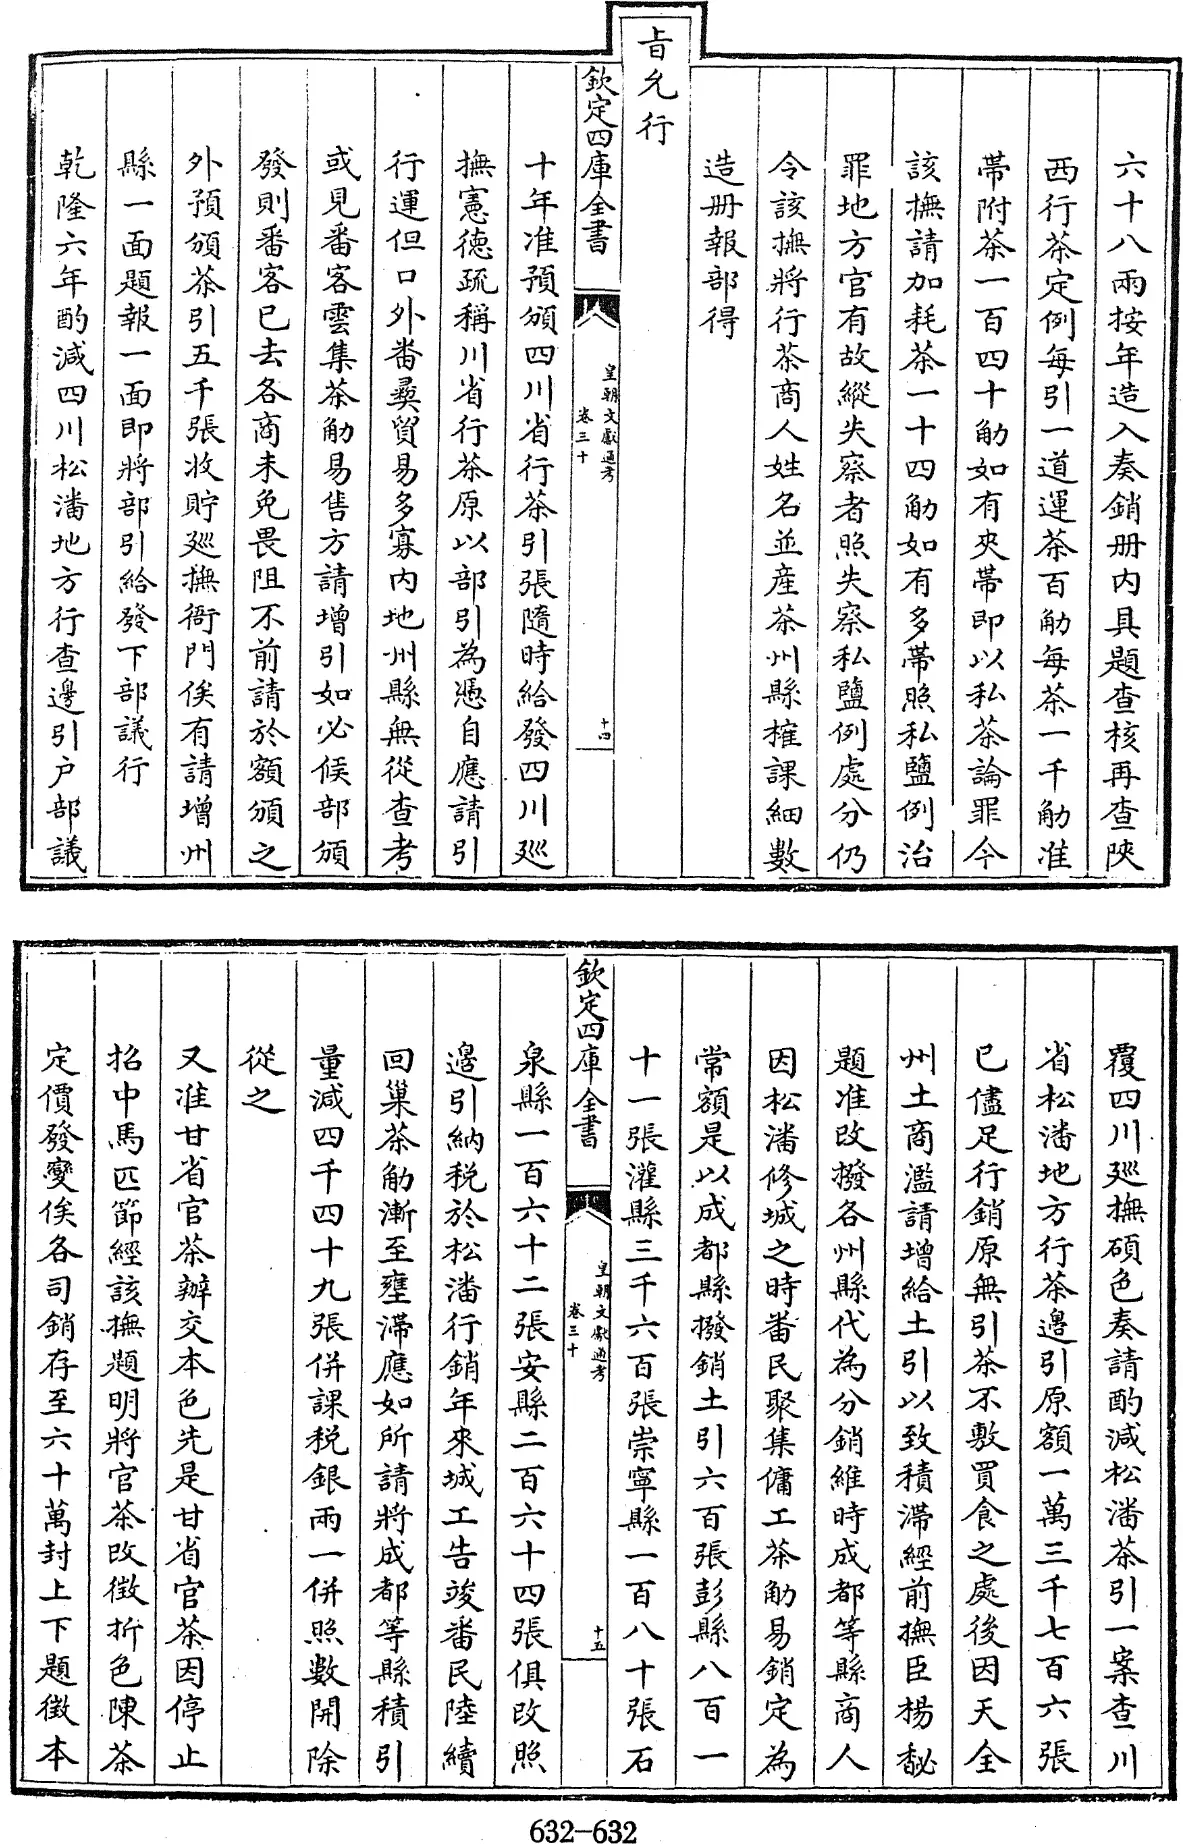 六十八兩按年造入奏銷册内具題查核再查陜
西行茶定例每引一道運茶百觔每茶一千觔准
帶附茶一百四十觔如有夾帶即以私茶論罪今
該撫請加耗茶一十四觔如有多帶照私鹽例治
罪地方官有故縱失察者照失察私鹽例處分仍
令該撫將行茶商人姓名並產茶州縣榷課細數
造册報部得
旨允行
欽定四庫全書
皇朝文獻通考
卷三十
十四
十年准預頒四川省行茶引張隨時給發四川巡
撫憲德疏稱川省行茶原以部引為憑自應請引
行運但口外畨彛貿易多寡内地州縣無從查考
或見番客雲集茶觔易售方請增引如必候部頒
發則番客已去各商未免畏阻不前請於額頒之
外預頒茶引五千張收貯廵撫衙門俟有請增州
縣一面題報一面即將部引給發下部議行
乾隆六年酌減四川松潘地方行查邊引户部議
覆四川廵撫碩色奏請酌減松潘茶引一案查川
省松潘地方行茶邊引原額一萬三千七百六張
已儘足行銷原無引茶不敷買食之處後因天全
州土商濫請增給土引以致積滯經前撫臣楊馝
題准改撥各州縣代為分銷維時成都等縣商人
因松潘修城之時畨民聚集傭工茶觔易銷定為
常額是以成都縣撥銷土引六百張彭縣八百一
十一張灌縣三千六百張崇寧縣一百八十張石
欽定四庫全書
皇朝文獻通考
卷三十
十五
泉縣一百六十二張安縣二百六十四張俱改照
邊引納税於松潘行銷年來城工告竣番民陸續
回巢茶觔漸至壅滯應如所請將成都等縣積引
量減四千四十九張併課税銀兩一併照數開除
從之
又准甘省官茶辦交本色先是甘省官茶因停止
招中馬匹節經該撫題明將官茶改徴折色陳茶
定價發變俟各司銷存至六十萬封上下題徴本
632-632